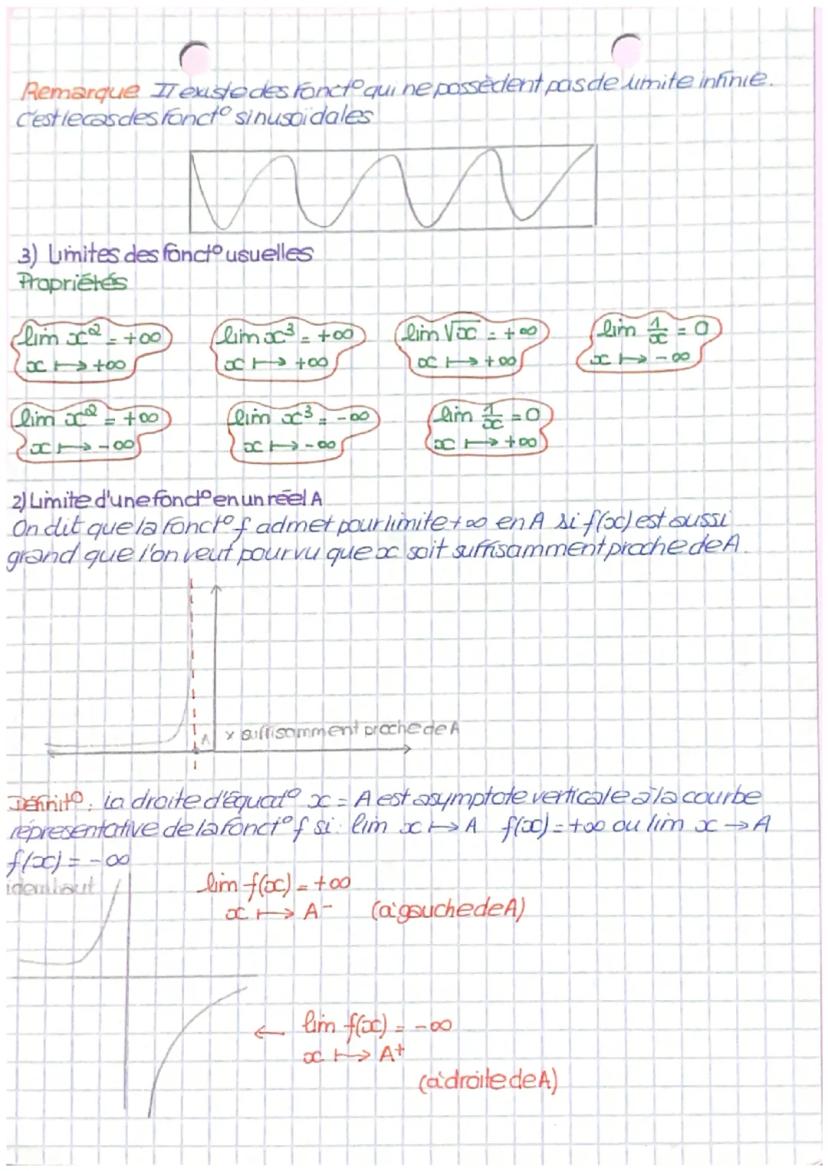 Remarque Il existe des fonct° qui ne possèdent pas de limite infinie.
c'est le cas des fonct° sinusoidales
3) Limites des fonct° usuelles
Propriétés
lim x² = +∞ lim x³ = +∞ lim √x = +∞ lim 1/x = 0
x ↦ +∞ x ↦ +∞ x ↦ +∞ x ↦ -∞
lim x² = +∞ lim x³ = -∞ lim 1/x = 0
x ↦ -∞ x ↦ -∞ x ↦ +∞
2) Limite d'une fonct° en un réel A
On dit que la fonct° f admet pour limite +∞ en A si f(x) est aussi
grand que l'on veut pourvu que x soit suffisamment proche de A.
A x suffisamment proche de A
Définit°: la droite d'équat° x = A est asymptote verticale à la courbe
répresentative de la fonct° f si: lim x ↦ A f(x) = +∞ ou lim x → A
f(x) = -∞
idem haut
lim f(x) = +∞
x ↦ A⁻ (à gauche de A)
← lim f(x) = -∞
x ↦ A⁺
(à droite de A)